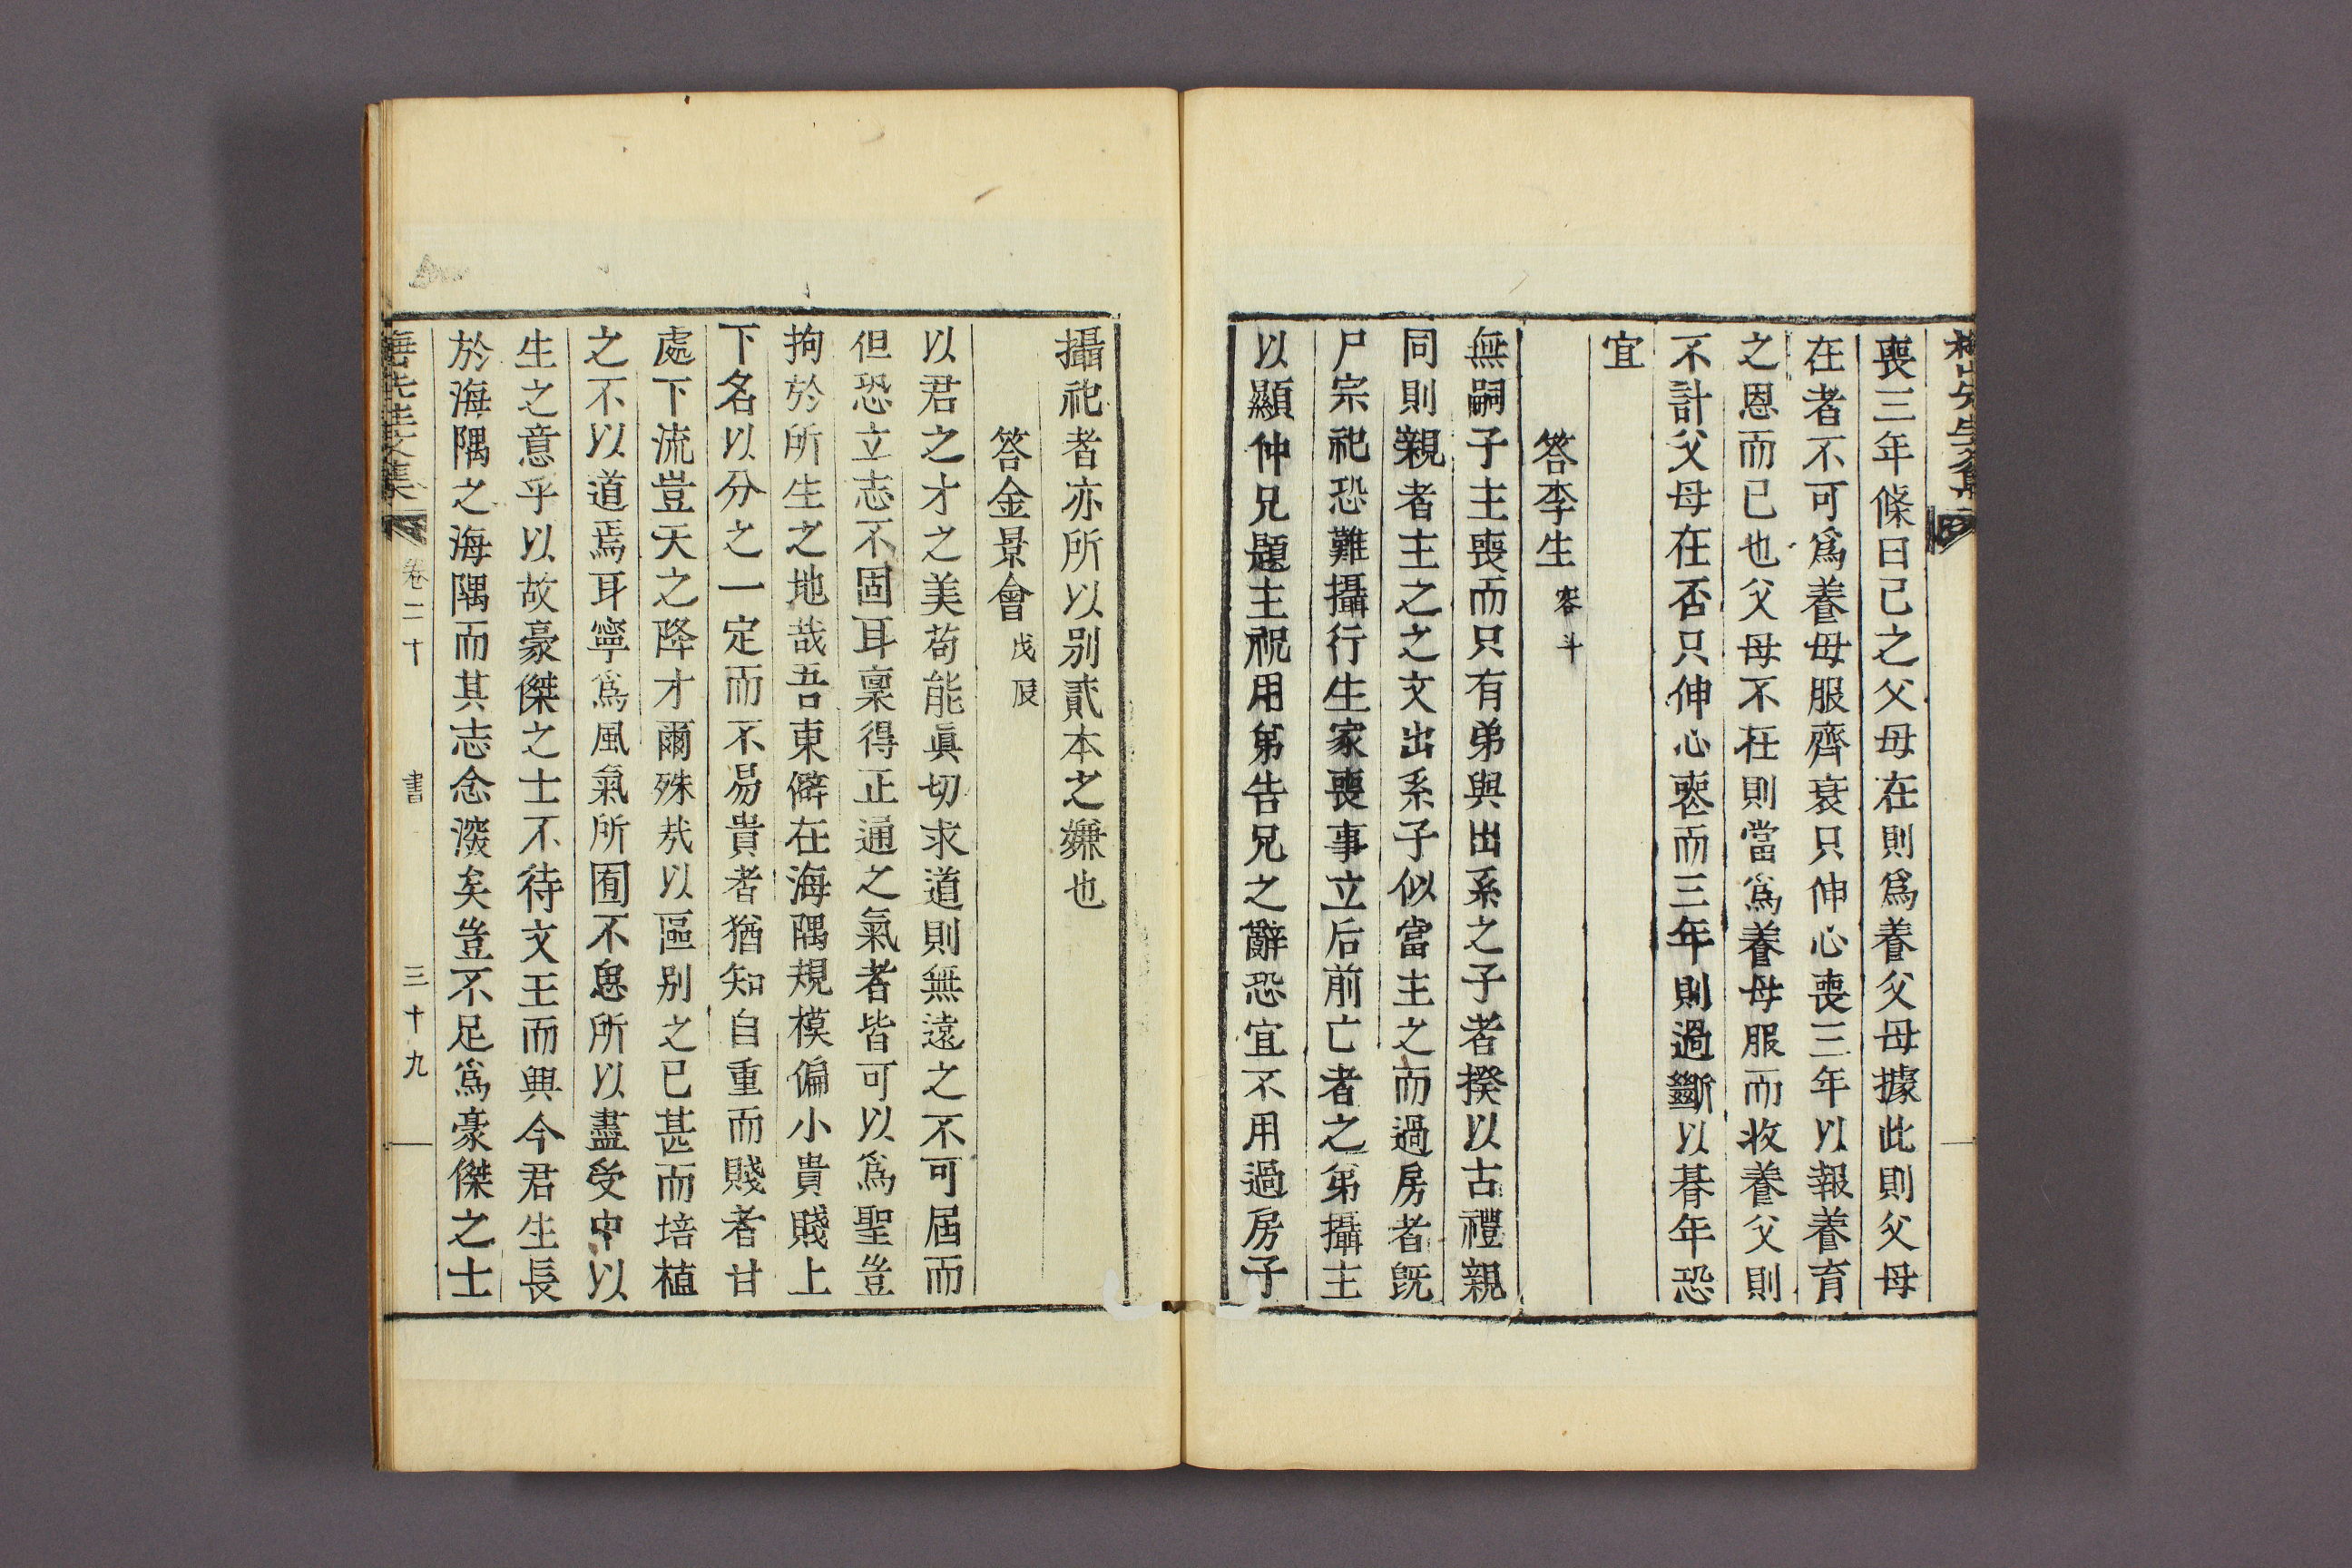 喪三年條曰己之父母在則爲養父母據此則父母
在者不可爲養母服齊衰只伸心喪三年以報養育
之恩而已也父母不在則當爲養母服而收養父則
不計父母在否只伸心喪而三年則過斷以朞年恐
宜
答李生 容斗
無嗣子主喪而只有弟與出系之子者揆以古禮親
同則親者主之之文出系子似當主之而過房者旣
尸宗祀恐難攝行生家喪事立后前亡者之弟攝主
以顯仲兄題主祝用弟告兄之辭恐宜不用過房子
攝祀者亦所以別貳本之嫌也
答金景會 戊辰
以君之才之美苟能眞切求道則無遠之不可屆而
但恐立志不固耳稟得正通之氣者皆可以爲聖豈
拘於所生之地哉吾東僻在海隅規模偏小貴賤上
下名以分之一定而不易貴者猶知自重而賤者甘
處下流豈天之降才爾殊哉以區別之已甚而培植
之不以道焉耳寧爲風氣所囿不思所以盡受中以
生之意乎以故豪傑之士不待文王而興今君生長
於海隅之海隅而其志念深矣豈不足爲豪傑之士
先生文集 卷二十 書 三十九